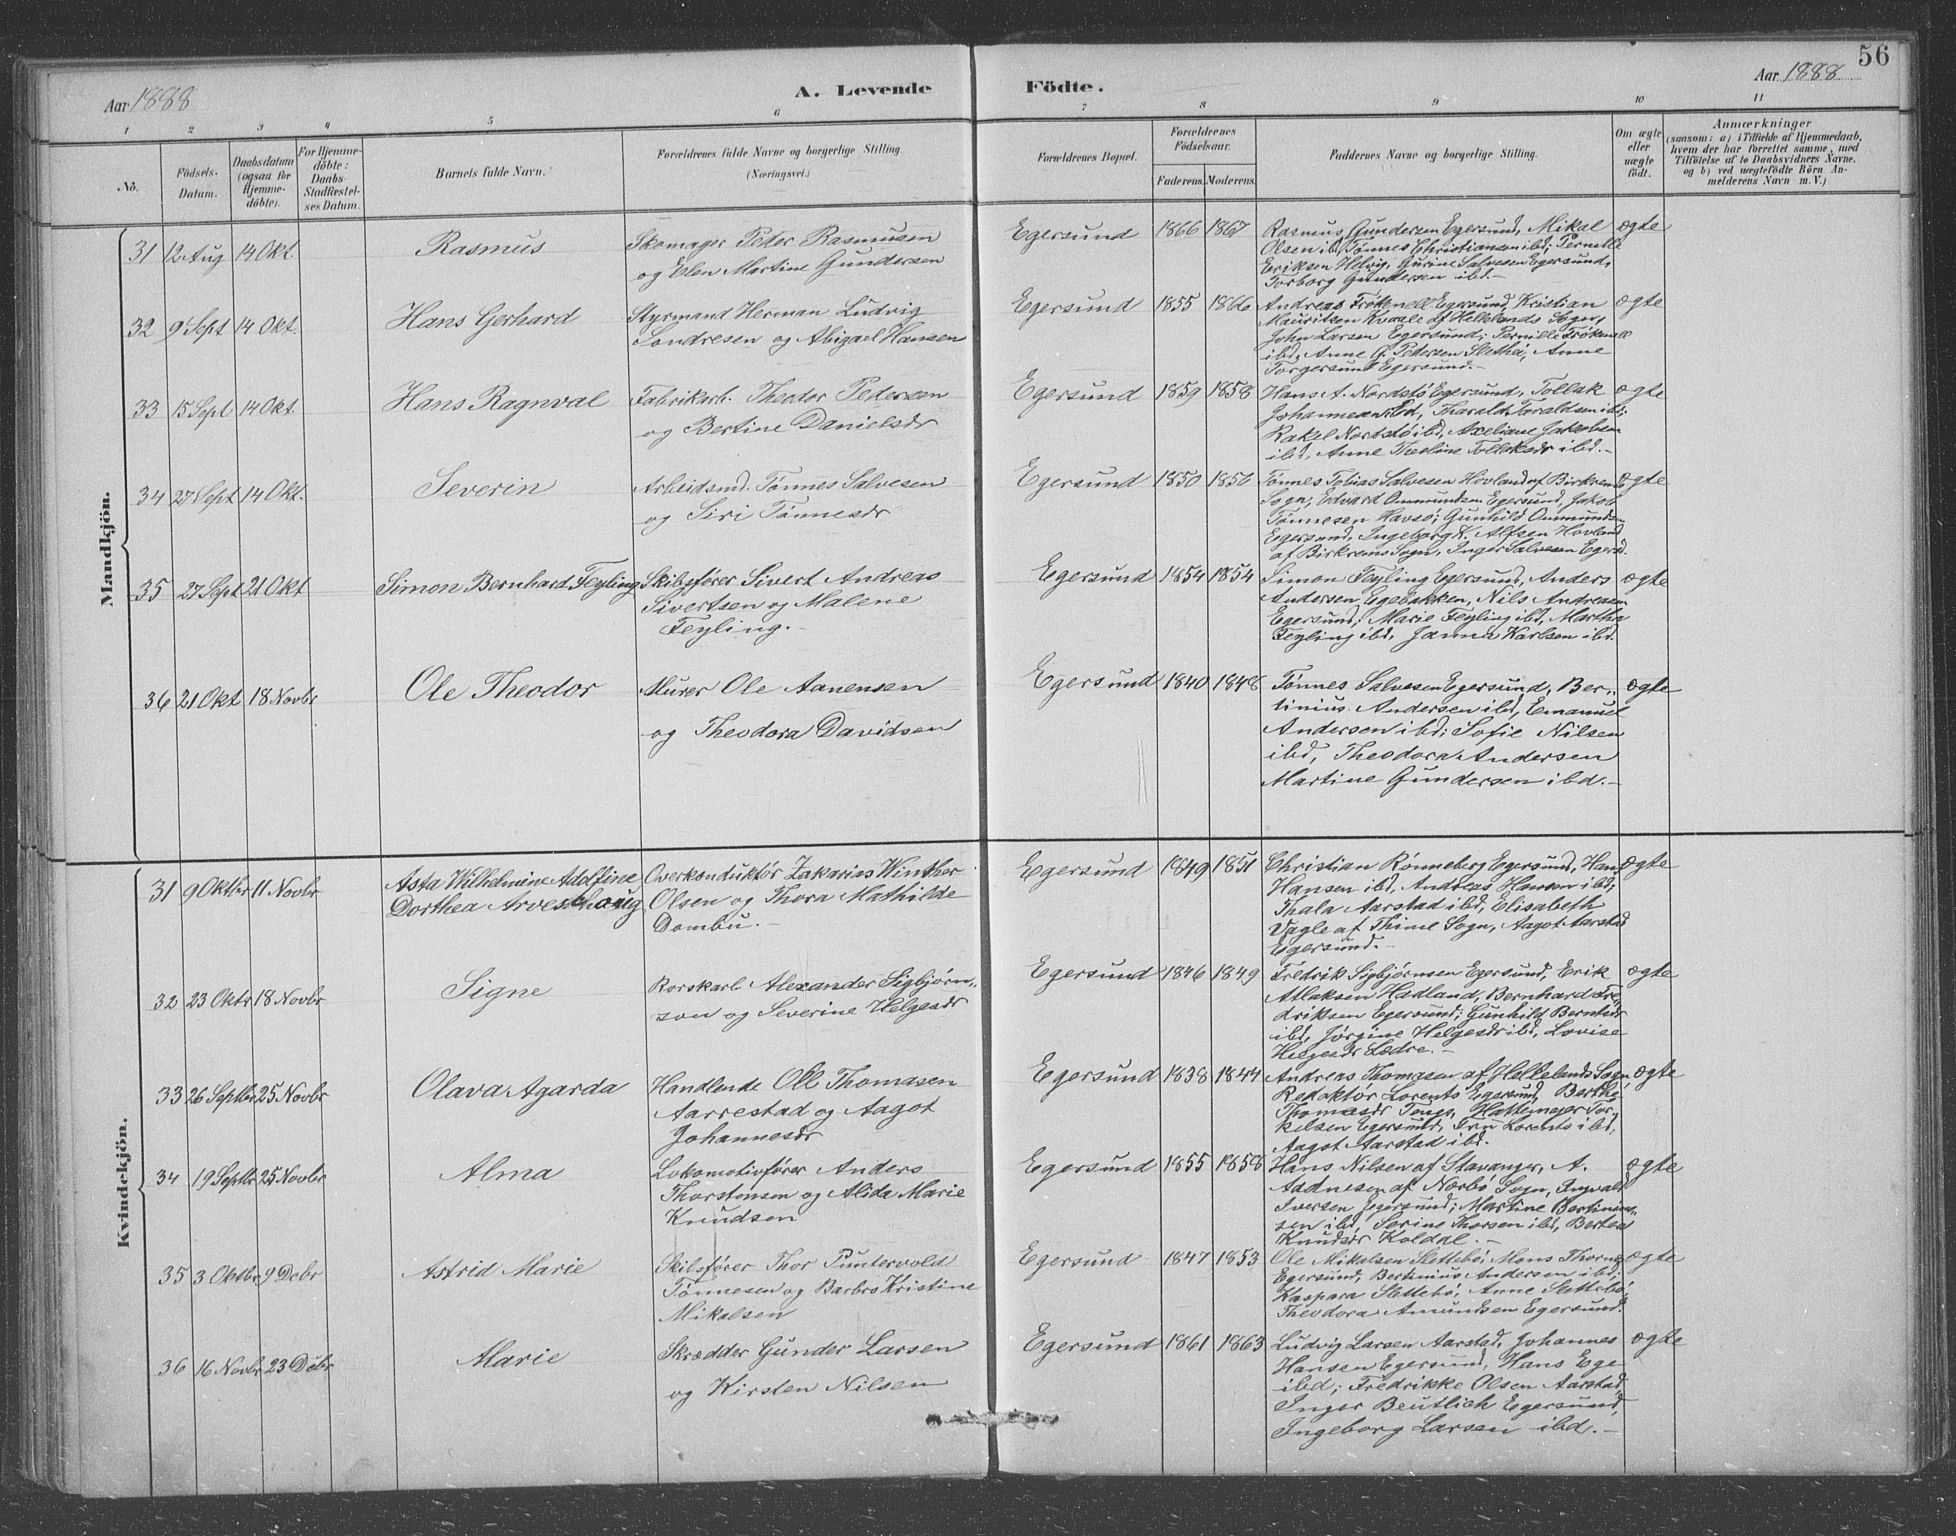 56
Aar 1888
A. Levende
Födte.
Aar 1888
1 2 3 4 5 6 7 8 9 10 11
No.
Födsels-
Datum.
Daabsdatum
(ogsaa for
Hjemme-
döbte).
For Hjemme-
döbte:
Daabs-
Stadfæstel-
ses Datum.
Barnets fulde Navn.
Forældrenes fulde Navne og borgerlige Stilling
(Næringsvei.)
Forældrenes Bopæl.
Forældrenes
Födselsaar.
Faderens. Moderens.
Faddernes Navne og borgerlige Stilling.
Om ægte
eller
uægte
födt.
Anmærkninger
(saasom: a) i Tilfælde af Hjemmedaab,
hvem der har forrettet samme, med
Tilföielse af to Daabsvidners Navne.
og b) ved uægtefödte Börn An-
melderens Navn m. V.)
Mandkjön.
31 12 Aug 14 Okt. Rasmus
Skomager Peter Rasmusen
og Elen Martine Gundersen
Egersund 1866 1867
Rasmus Gundersen Egersund, Mikal
Olsen ibd, Tønnes Christiansen ibd; Pernille
Eriksen Helvig, Gurine Salvesen Egersund,
Torborg Gundersen ibd.-
ægte
32 9 Sept 14 Okt. Hans Gerhard
Styrmand Herman Ludvig
Sondresen og Abigael Hansen
Egersund 1855 1866
Andreas Frøknell Egersund, Kristian
Mauritsen Kvaale af Hellelands Sogn,
John Larsen Egersund; Pernille Frøknell
ibd, Anne G. Petersen Slethei, Anne
Torgersund Egersund.-
ægte
33 15 Sept 14 Okt. Hans Ragnval
Fabrikarb. Theodor Pedersen
og Bertine Danielsdr
Egersund 1859 1858
Hans A. Nordstø Egersund, Tollak
Johannesen ibd, Tharald Toraldsen ibd;
Rakel Nortstø ibd, Axeliane Jakobsen
ibd, Anne Theoline Tollaksdr ibd.-
ægte
34 27 Sept 14 Okt. Severin
Arbeidsmd. Tønnes Salvesen
og Siri Tønnesdr
Egersund 1850 1856
Tønnes Tobias Salvesen Hovland af Birkrems
Sogn, Edvard Ommundsen Egersund, Jakob
Tønnesen Havsø; Gunhild Ommundsen
Egersund, Ingeborg K. Alfsen Hovland
af Birkrems Sogn, Inger Salvesen Egersd.
ægte
35 27 Sept 21 Okt Simon Bernhard Feyling
Skibsfører Sivert Andreas
Sivertsen og Malene
Feyling.-
Egersund 1854 1854
Simon Feyling Egersund, Anders
Andersen Egebakken, Nils Andreasen
Egersund; Marie Feyling ibd, Martha
Feyling ibd, Janna Karlsen ibd.
ægte
36 21 Okt 18 Novbr Ole Theodor
Murer Ole Aanensen
og Theodora Davidsen
Egersund 1840 1848
Tønnes Salvesen Egersund, Ber-
tinius Andersen ibd, Emanuel
Andersen ibd; Sofie Nilsen
ibd, Theodora Andersen
Martine Gundersen ibd.-
ægte
Kvindekjön.
31 9 Oktbr 11 Novbr Asta Wilhelmine Adolfine
Dorthea Arveschoug
Overkonduktør Zakarias Winther
Olsen og Thora Mathilde
Dombu.-
Egersund 1849 1851
Christian Rønneberg Egersund, Hans
Hansen ibd, Andreas Hanson ibd;
Thala Aarstad ibd, Elisabeth
Vagle af Thime Sogn, Aagot Aarstad
Egersund.-
ægte
32 23 Oktr 18 Novbr Signe
Rorskarl Alexander Sigbjørn-
son og Severine Helgesdr
Egersund 1846 1849
Fredrik Sigbjørnsen Egersund, Erik
Atlaksen Hadland, Bernhard Fre-
driksen Egersund; Gunhild Berntsdr
ibd, Jørgine Helgesdr ibd, Lovise
Helgesdr Lædre.-
ægte
33 26 Septbr 25 Novbr Olava Agarda
Handlende Oll Thomasen
Aarrestad og Aagot
Johannesdr
Egersund 1838 1844
Andreas Thomasen af Hellelands Sogn
Redaktør Lorents Egersund, Berthe
Thomasdr Tengs, Hattemager Tor-
kelsen Egersund, Fru Lorents ibd;
Aagot Aarstad ibd.
ægte
34 19 Septbr 25 Novbr Alma
Lokomotivfører Anders
Thorstensen og Alida Marie
Knudsen
Egersund 1855 1858
Hans Nilsen af Stavanger, A.
Aadnesen af Nærbø Sogn, Ingvald
Iversen Egersund; Martine Bertinius-
sen ibd, Serine Thorsen ibd, Berthea
Knudsdr Koldal.-
ægte
35 3 Oktbr 9 Debr Astrid Marie
Skibsfører Thor Puntervold
Tønnesen og Barbro Kristine
Mikalsen
Egersund 1847 1853
Ole Mikalsen Slettebø, Mons Thorsen
Egersund, Bertinius Andersen ibd;
Kaspara Slettebø, Anne Slettebø,
Theodora Amundsen Egersund.
ægte
36 16 Novbr 23 Debr Marie
Skrædder Gunder Larsen
og Kirsten Nilsen
Egersund 1861 1863
Ludvig Larsen Aarstad, Johannes
Hansen Egersund, Hans Ege
ibd; Fredrikke Olsen Aarstad,
Inger Beutlich Egersund,
Ingeborg Larsen ibd.-
ægte